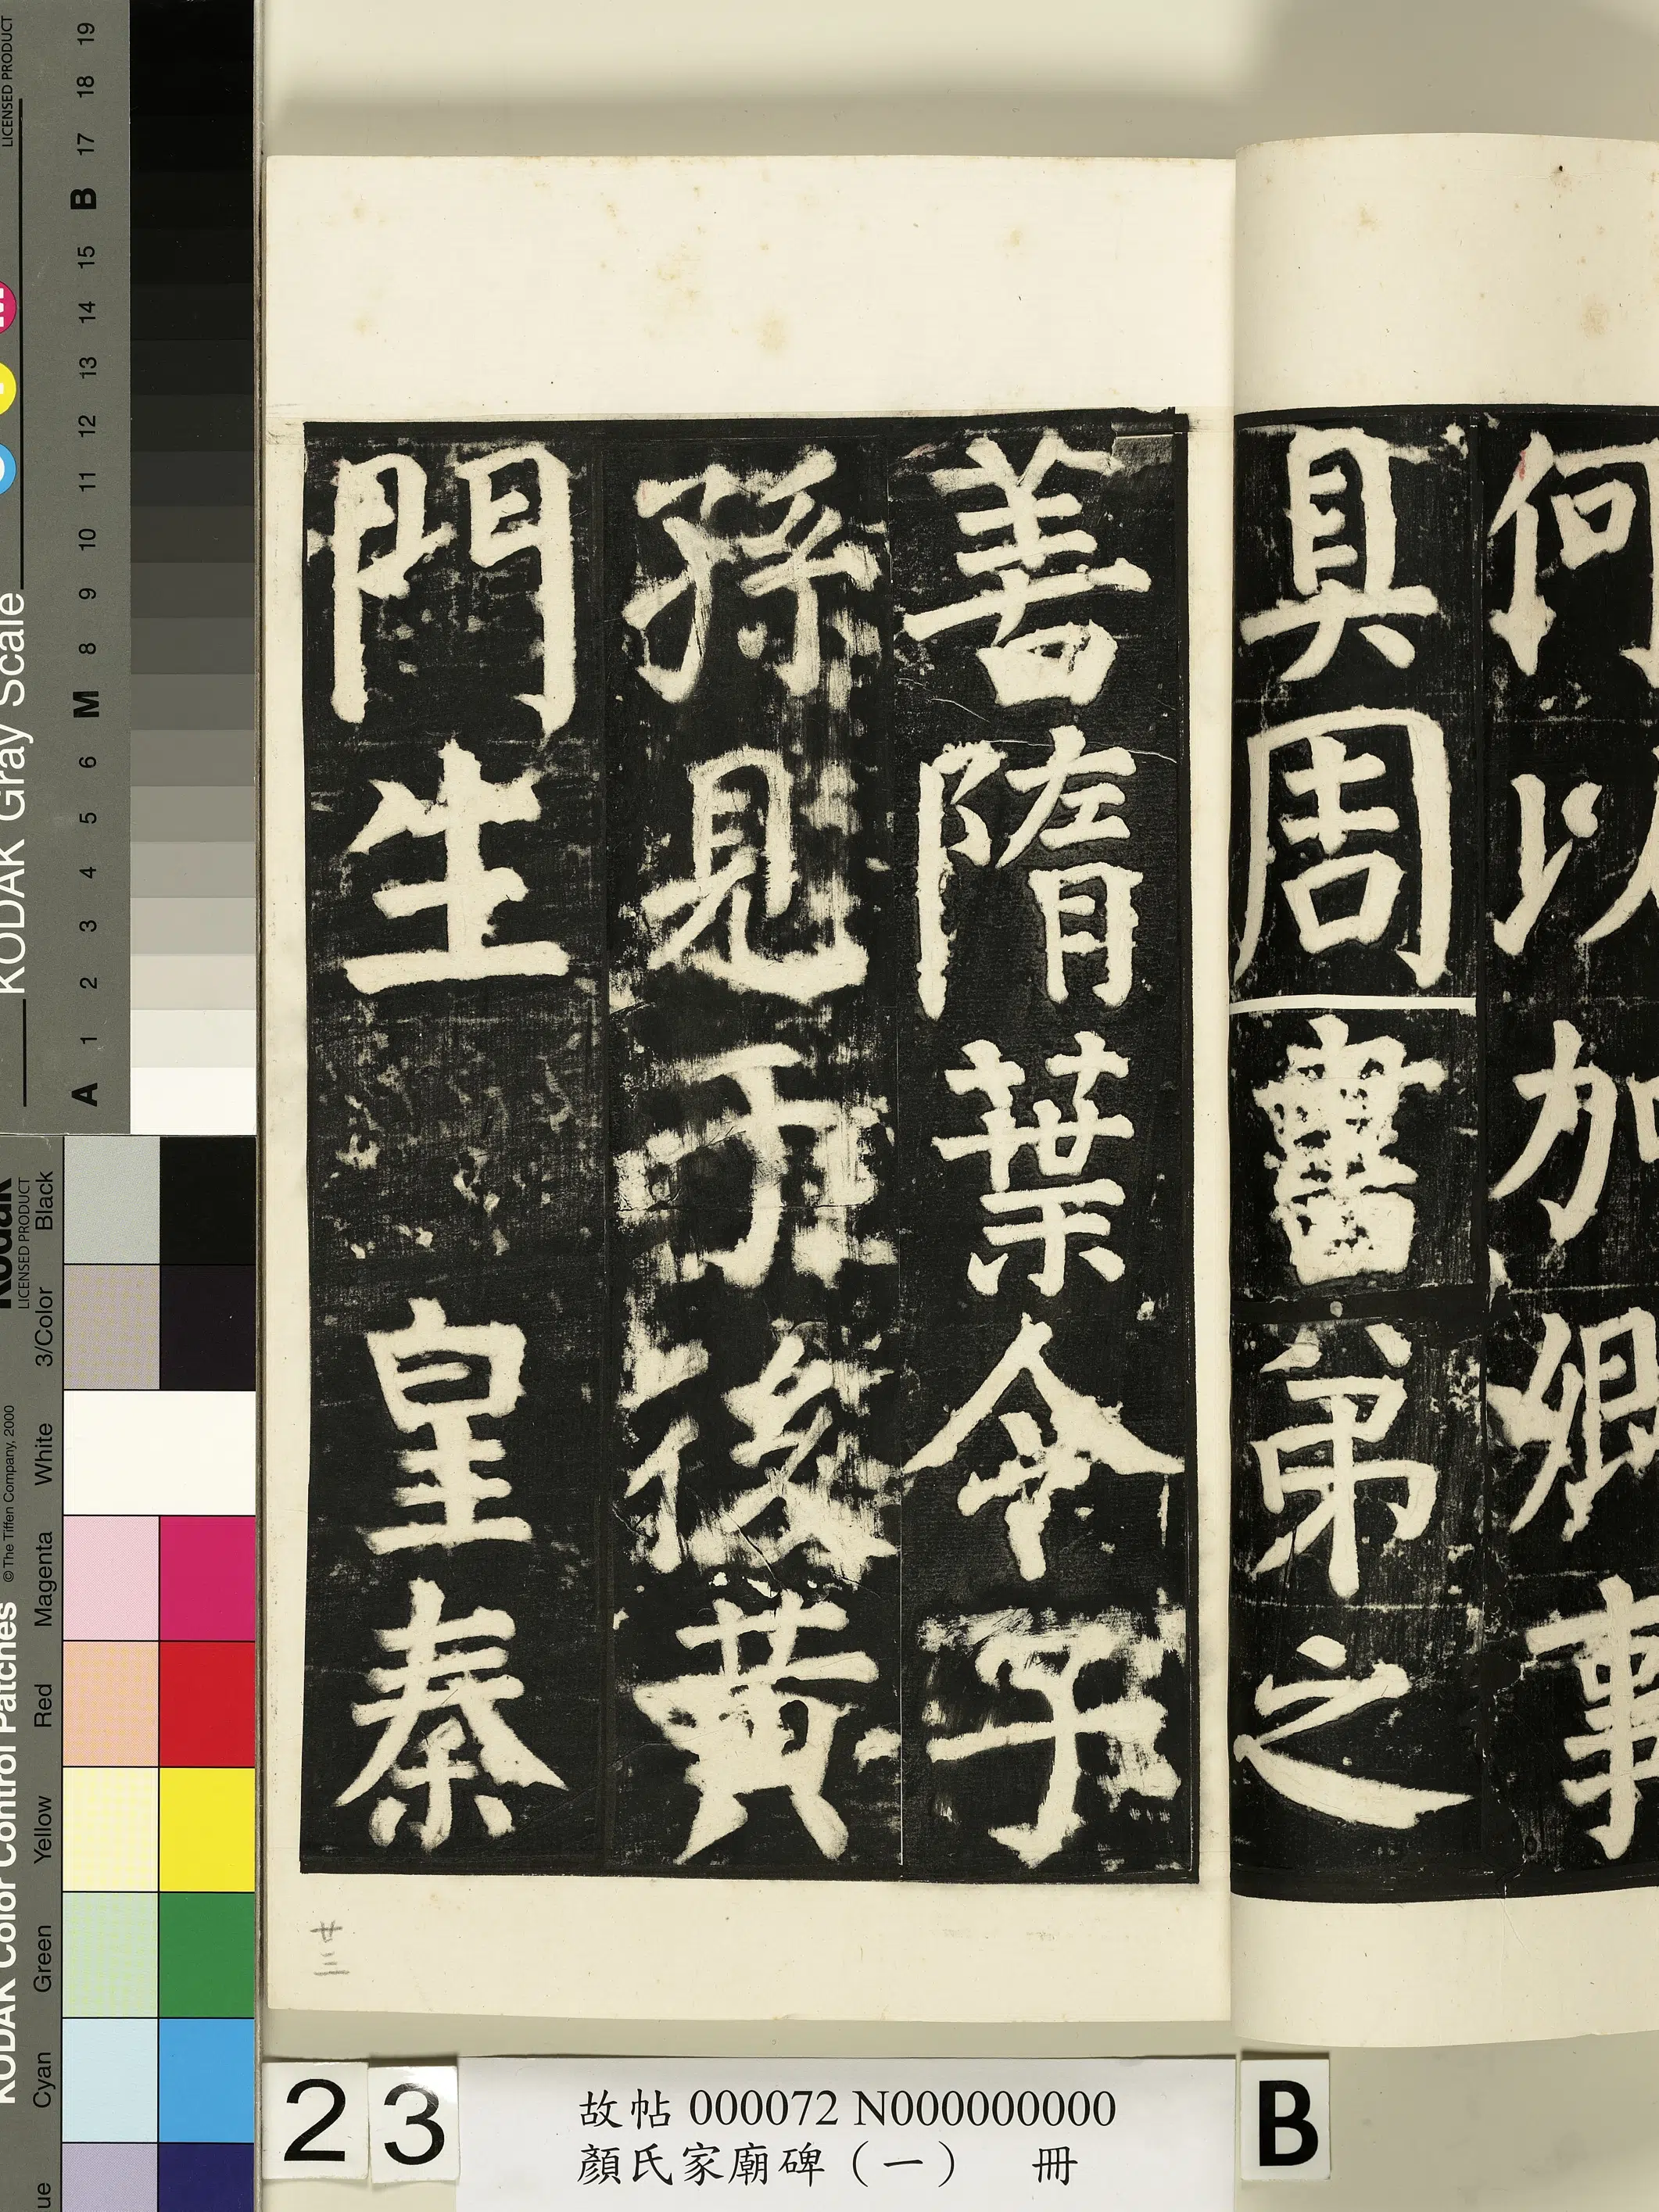 何以加卿事
具周書弟之
善隋葉令子
孫見于後黃
門生 皇秦
廿三
23
故帖 000072 N000000000
顏氏家廟碑（一） 冊
B
KODAK Gray Scale
LICENSED PRODUCT
A 1 2 3 4 5 6 M 8 9 10 11 12 13 14 15 B 17 18 19
KODAK Color Control Patches
© The Tiffen Company, 2000
Kodak
LICENSED PRODUCT
Cyan Green Yellow Red Magenta White 3/Color Black